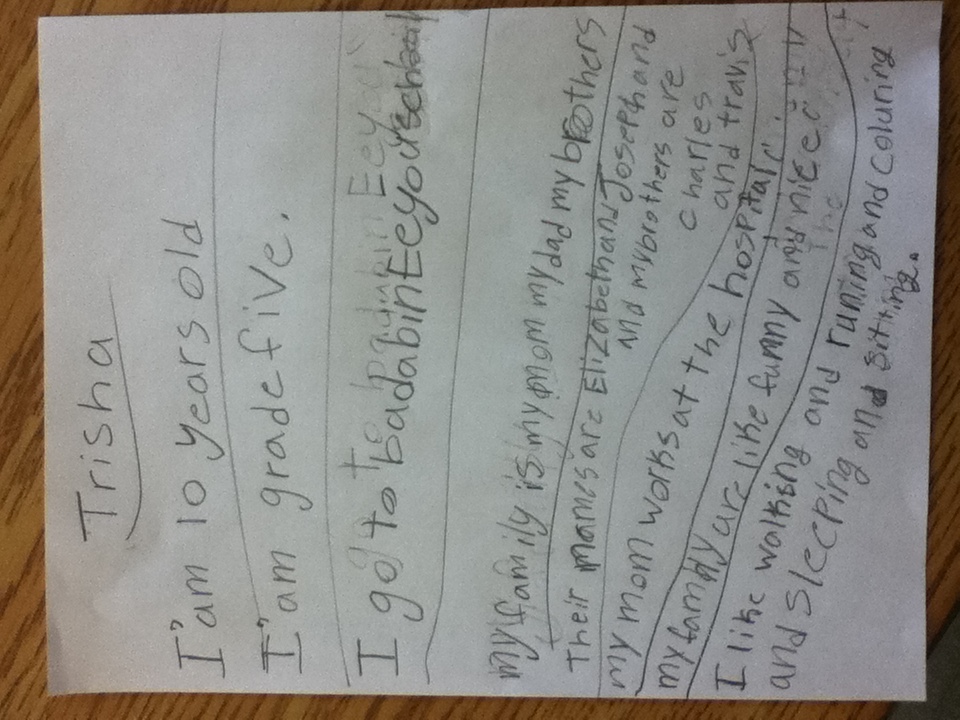 Trisha
I'am 10 years old
I'am grade five.
I go to badabin Eeyou school
my family is my mom my dad my brothers
Their names are Elizabeth and Joseph and
and my brothers are
charles
and travis
my mom works at the hospital
my family are like funny and nice
I like walking and runing and coluring
and sleeping and sitting.